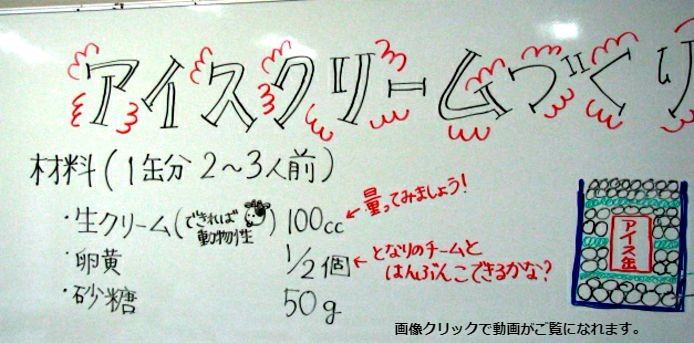 アイスクリームづくり
材料(1缶分 2〜3人前)
・生クリーム(できれば動物性) 100cc
←量ってみましょう!
・卵黄 1/2個
←となりのチームと
はんぶんこできるかな?
・砂糖 50g
アイス缶
画像クリックで動画がご覧になれます。